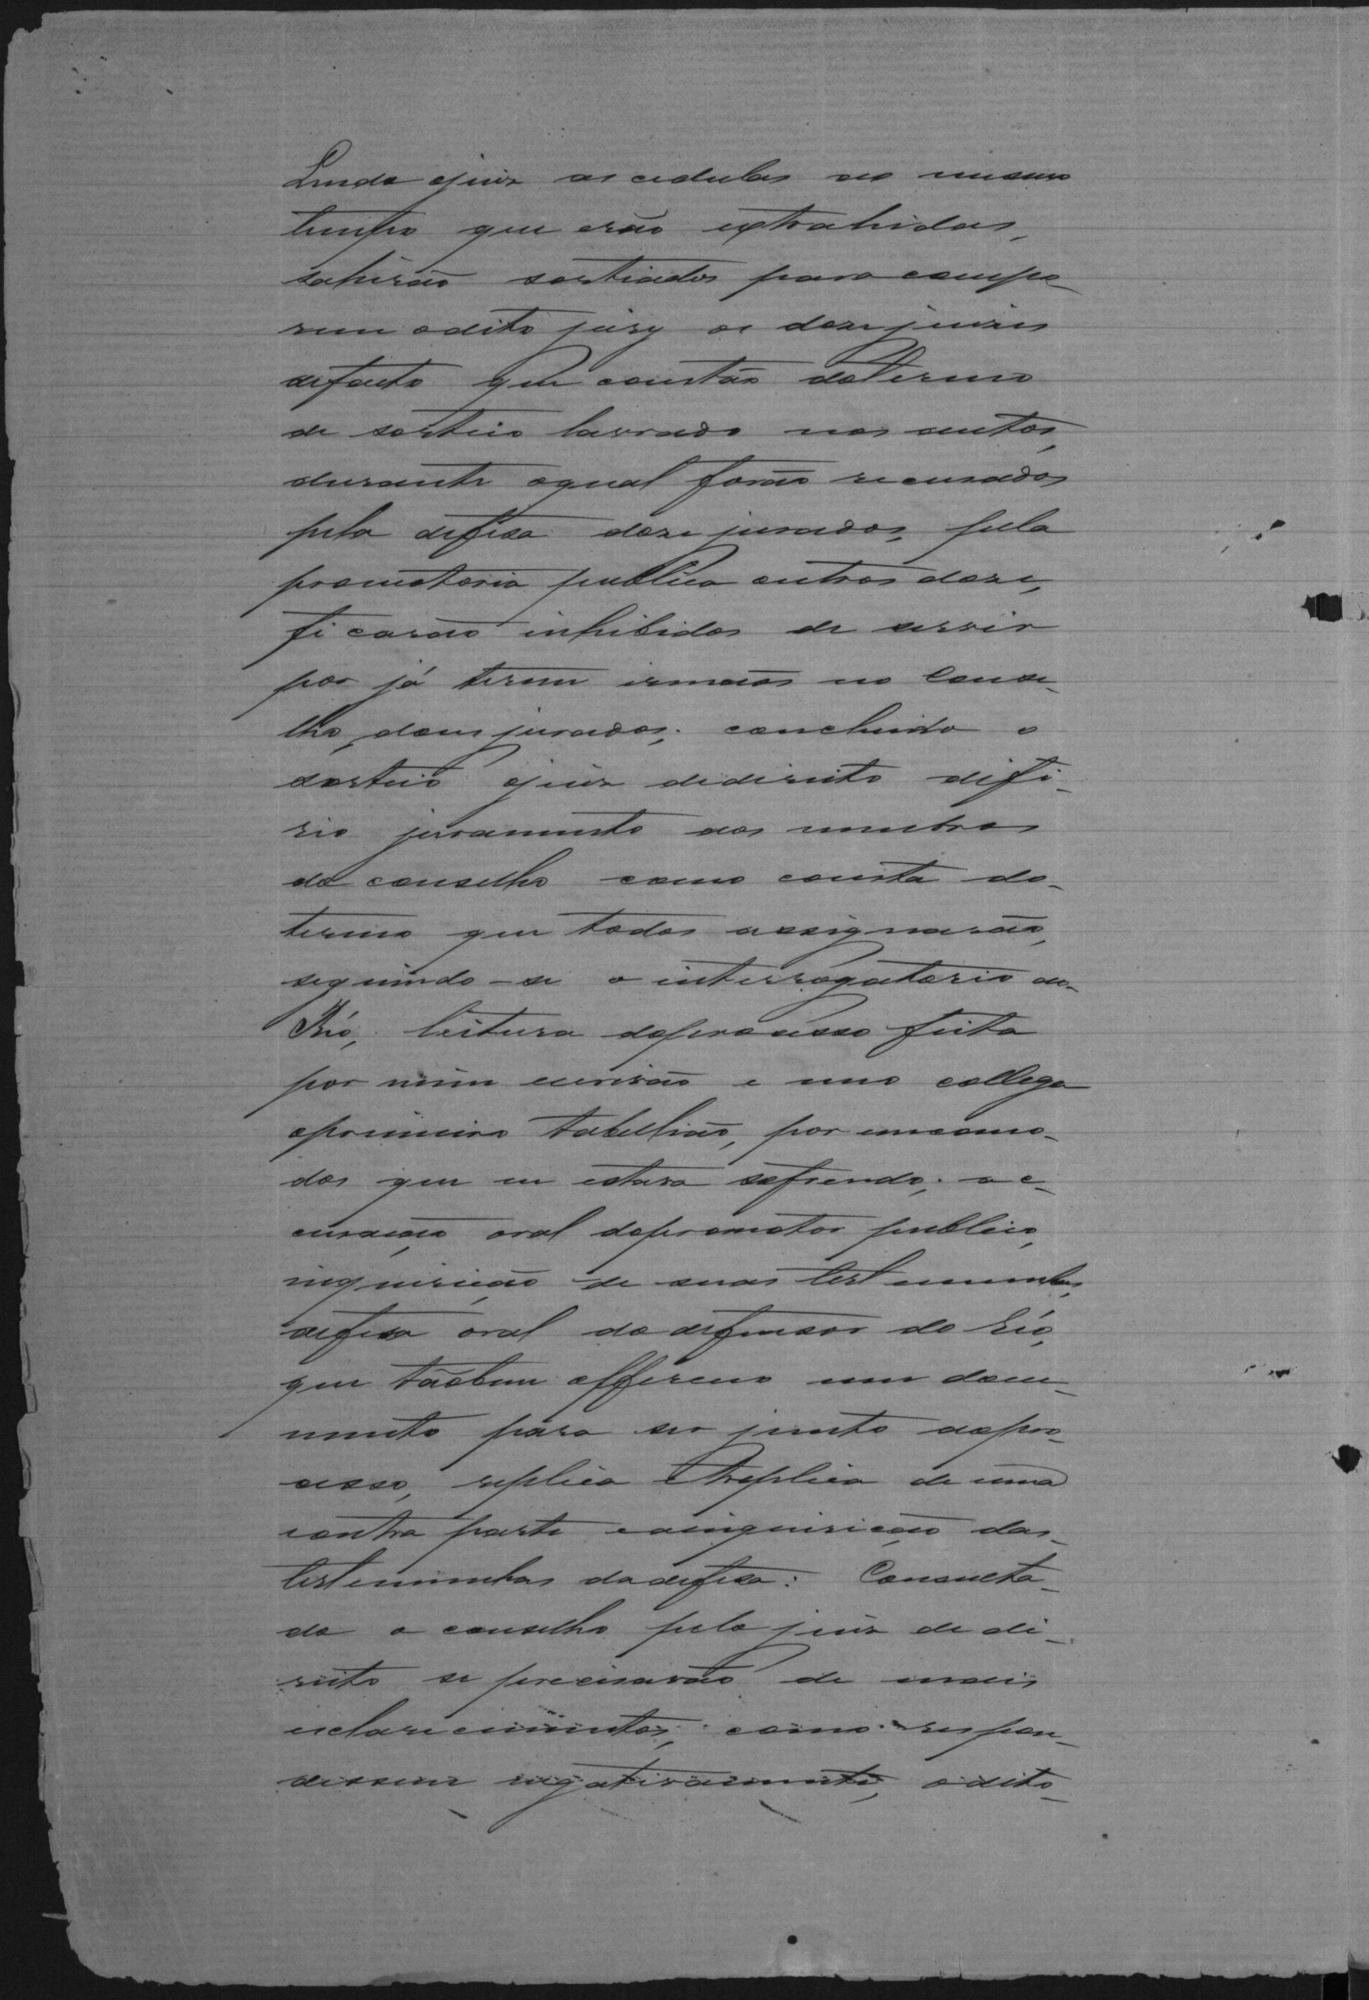 Lendo o juiz as cedulas ao mesmo
tempo que erão extrahidas,
sahirão sorteados para compo-
rem o dito jury os doze juizes
de facto que constão do termo
de sorteio lavrado nos autos,
durante o qual forão recusados
pela defesa doze jurados, pela
promotoria publica outros doze,
ficarão inhibidos de servir
por já terem irmãos no Conse-
lho, dous jurados; concluido o
sorteio o juiz de direito defe-
rio juramento aos membros
do conselho como consta do
termo que todos assignarão,
seguindo-se o interrogatorio ao
Réo, leitura do processo feita
por mim escrivão e meo collega
o primeiro tabellião, por incomo-
dos que eu estava sofrendo; ac-
cusação oral do promotor publico,
inquirição de suas testemunhas,
defesa oral do defensor do réo,
que tãobem offereceo um docu-
mento para ser junto ao pro-
cesso, replica e treplica de uma
contra parte e a inquirição das
testemunhas da defesa: Consulta-
do o conselho pelo juiz de di-
reito se precisavão de mais
esclarecimentos, como respon-
dessem negativamente, o dito